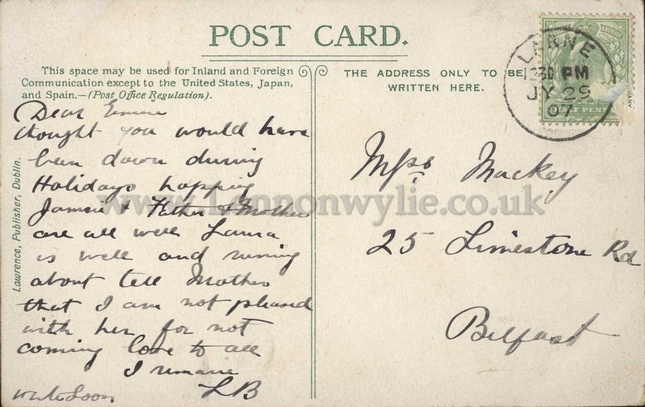 POST CARD.
This space may be used for Inland and Foreign
Communication except to the United States, Japan,
and Spain.—(Post Office Regulation).
THE ADDRESS ONLY TO BE
WRITTEN HERE.
LARNE
12 30 PM
JY 29
07
Lawrence, Publisher, Dublin.
Dear Emma
thought you would have
been down during
Holidays hopping
Jamsie & Father & Mother
are all well Lanna
is well and runing
about tell Mother
that I am not pleased
with her for not
coming love to all
I remane
LB
write Soon
Miss Mackey
25 Limestone Rd
Belfast
www.Lennonwylie.co.uk